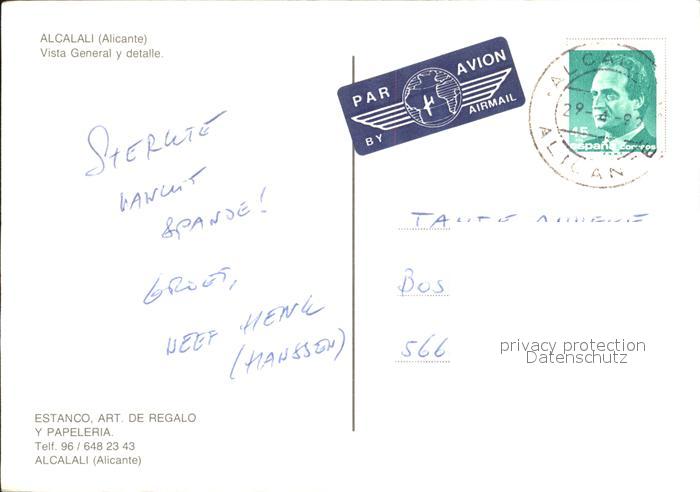 ALCALALI (Alicante)
Vista General y detalle.
PAR AVION
BY AIRMAIL
ALICAN
29
45
españa correos
STERKTE
VANUIT
SPANJE!
GROET,
NEEF HENK
(HANSSEN)
TANTE
Bos
566
privacy protection
Datenschutz
ESTANCO, ART. DE REGALO
Y PAPELERIA.
Telf. 96 / 648 23 43
ALCALALI (Alicante)